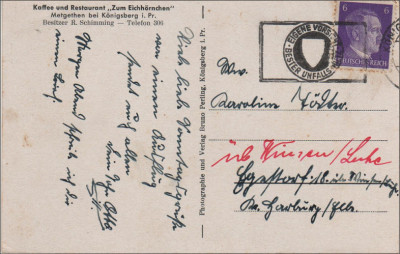 Kaffee und Restaurant „Zum Eichhörnchen"
Metgethen bei Königsberg i. Pr.
Besitzer R. Schimming — Telefon 306
Viele liebe Sonntagsgrüße
von einem Ausflug
sendet euch allen
Dein Otto
Morgen Abend schreib ich dir
einen Brief.
Photographie und Verlag Bruno Perling, Königsberg i. Pr.
EIGENE VORSICHT
BESTER UNFALLSCHUTZ
6 6
DEUTSCHES REICH
Karoline
üb Winsen/Luhe
Egestorf
Kr. Harburg/Elbe.